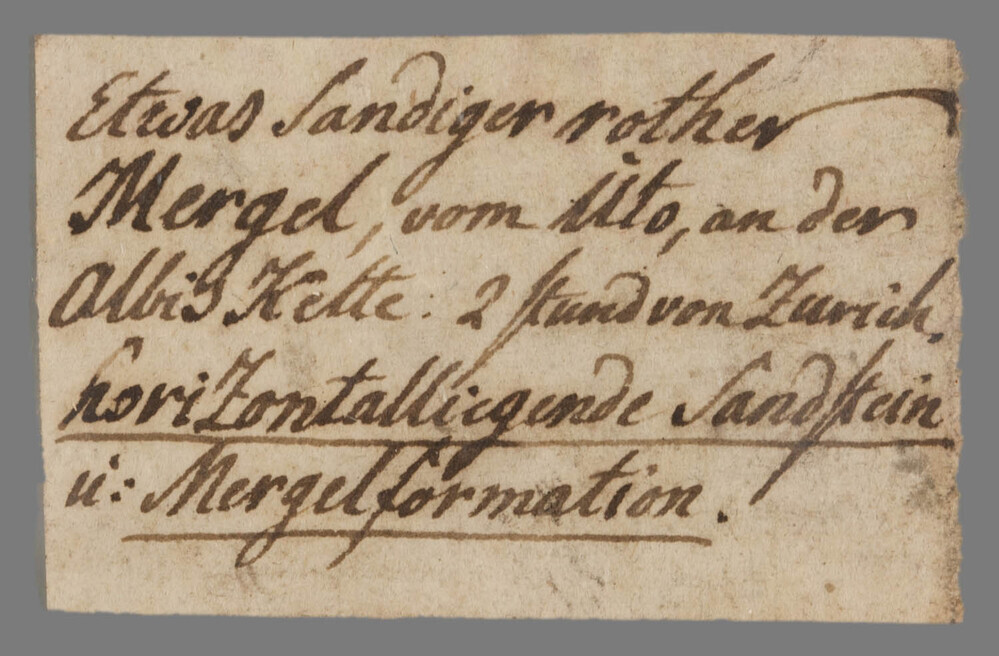 Etwas Sandiger rother
Mergel, vom Üto, an der
Albis Kette: 2 stund von Zurich.
horizontalliegende Sandstein
u: Mergelformation.